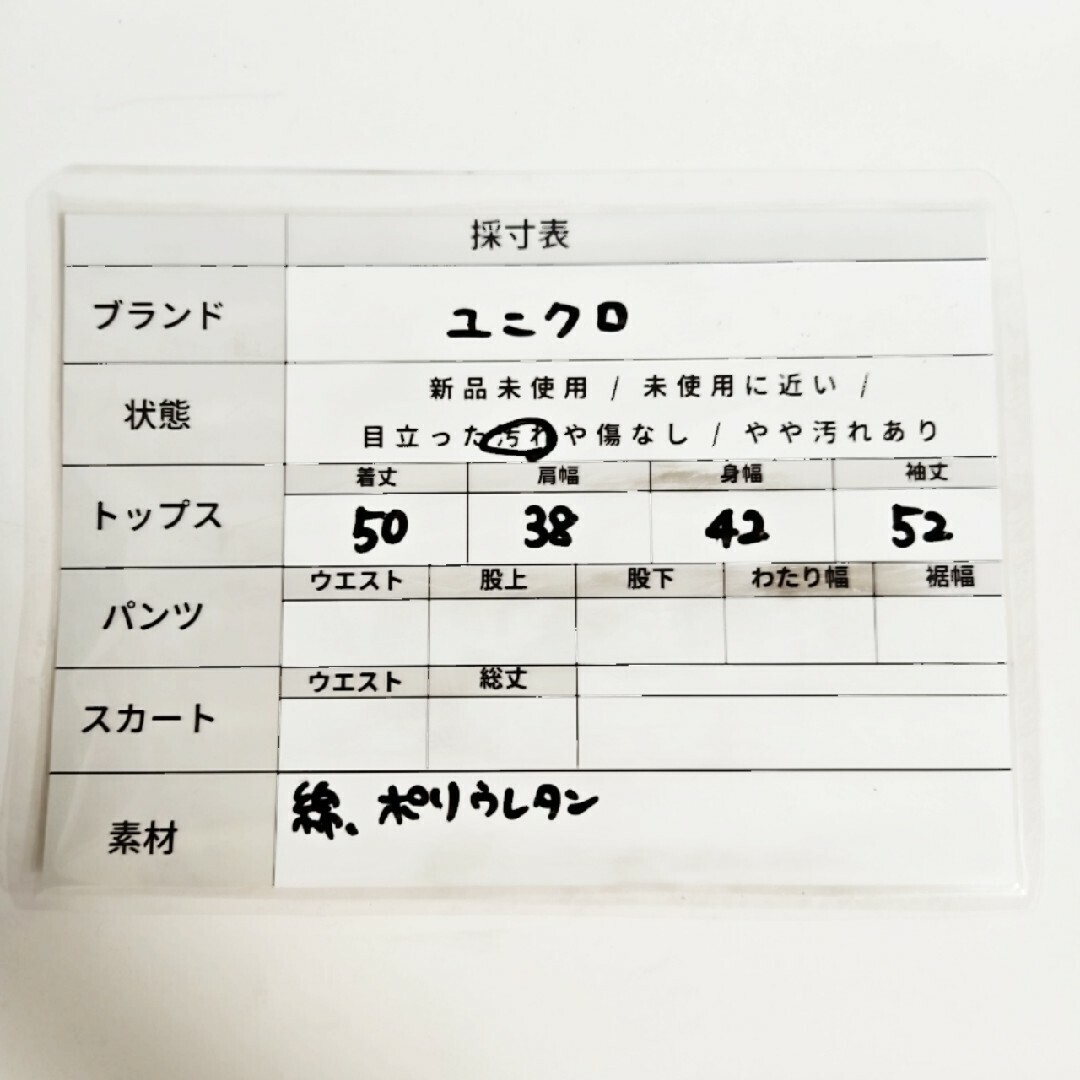 採寸表
ブランド ユニクロ
状態 新品未使用 / 未使用に近い /
目立った汚れや傷なし / やや汚れあり
着丈 肩幅 身幅 袖丈
トップス 50 38 42 52
ウエスト 股上 股下 わたり幅 裾幅
パンツ
ウエスト 総丈
スカート
素材 綿、ポリウレタン